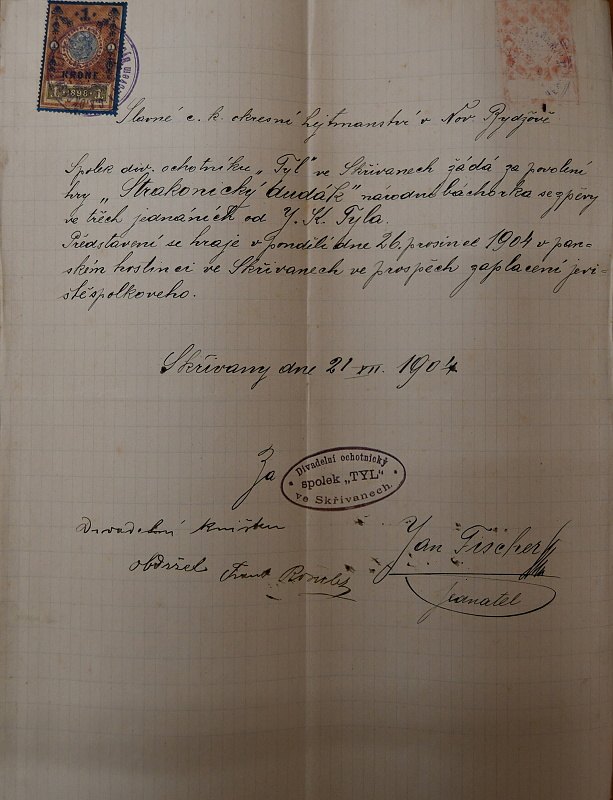 1
KRONE
1 1898 1
Slavné c. k. okresní hejtmanství v Nov. Bydžově
Spolek div. ochotníků „Tyl" ve Skřivanech žádá za povolení
hry „Strakonický dudák" národní báchorka se zpěvy
ve třech jednaních od J. K. Tyla.
Představení se hraje v pondělí dne 26. prosince 1904 v pan-
ském hostinci ve Skřivanech ve prospěch zaplacení jevi-
ště spolkoveho.
Skřivany dne 21 XII. 1904
Za
Divadelní ochotnický
spolek „TYL"
ve Skřivanech.
Divadelní knížku
obdržel
Jan Fischer
jednatel